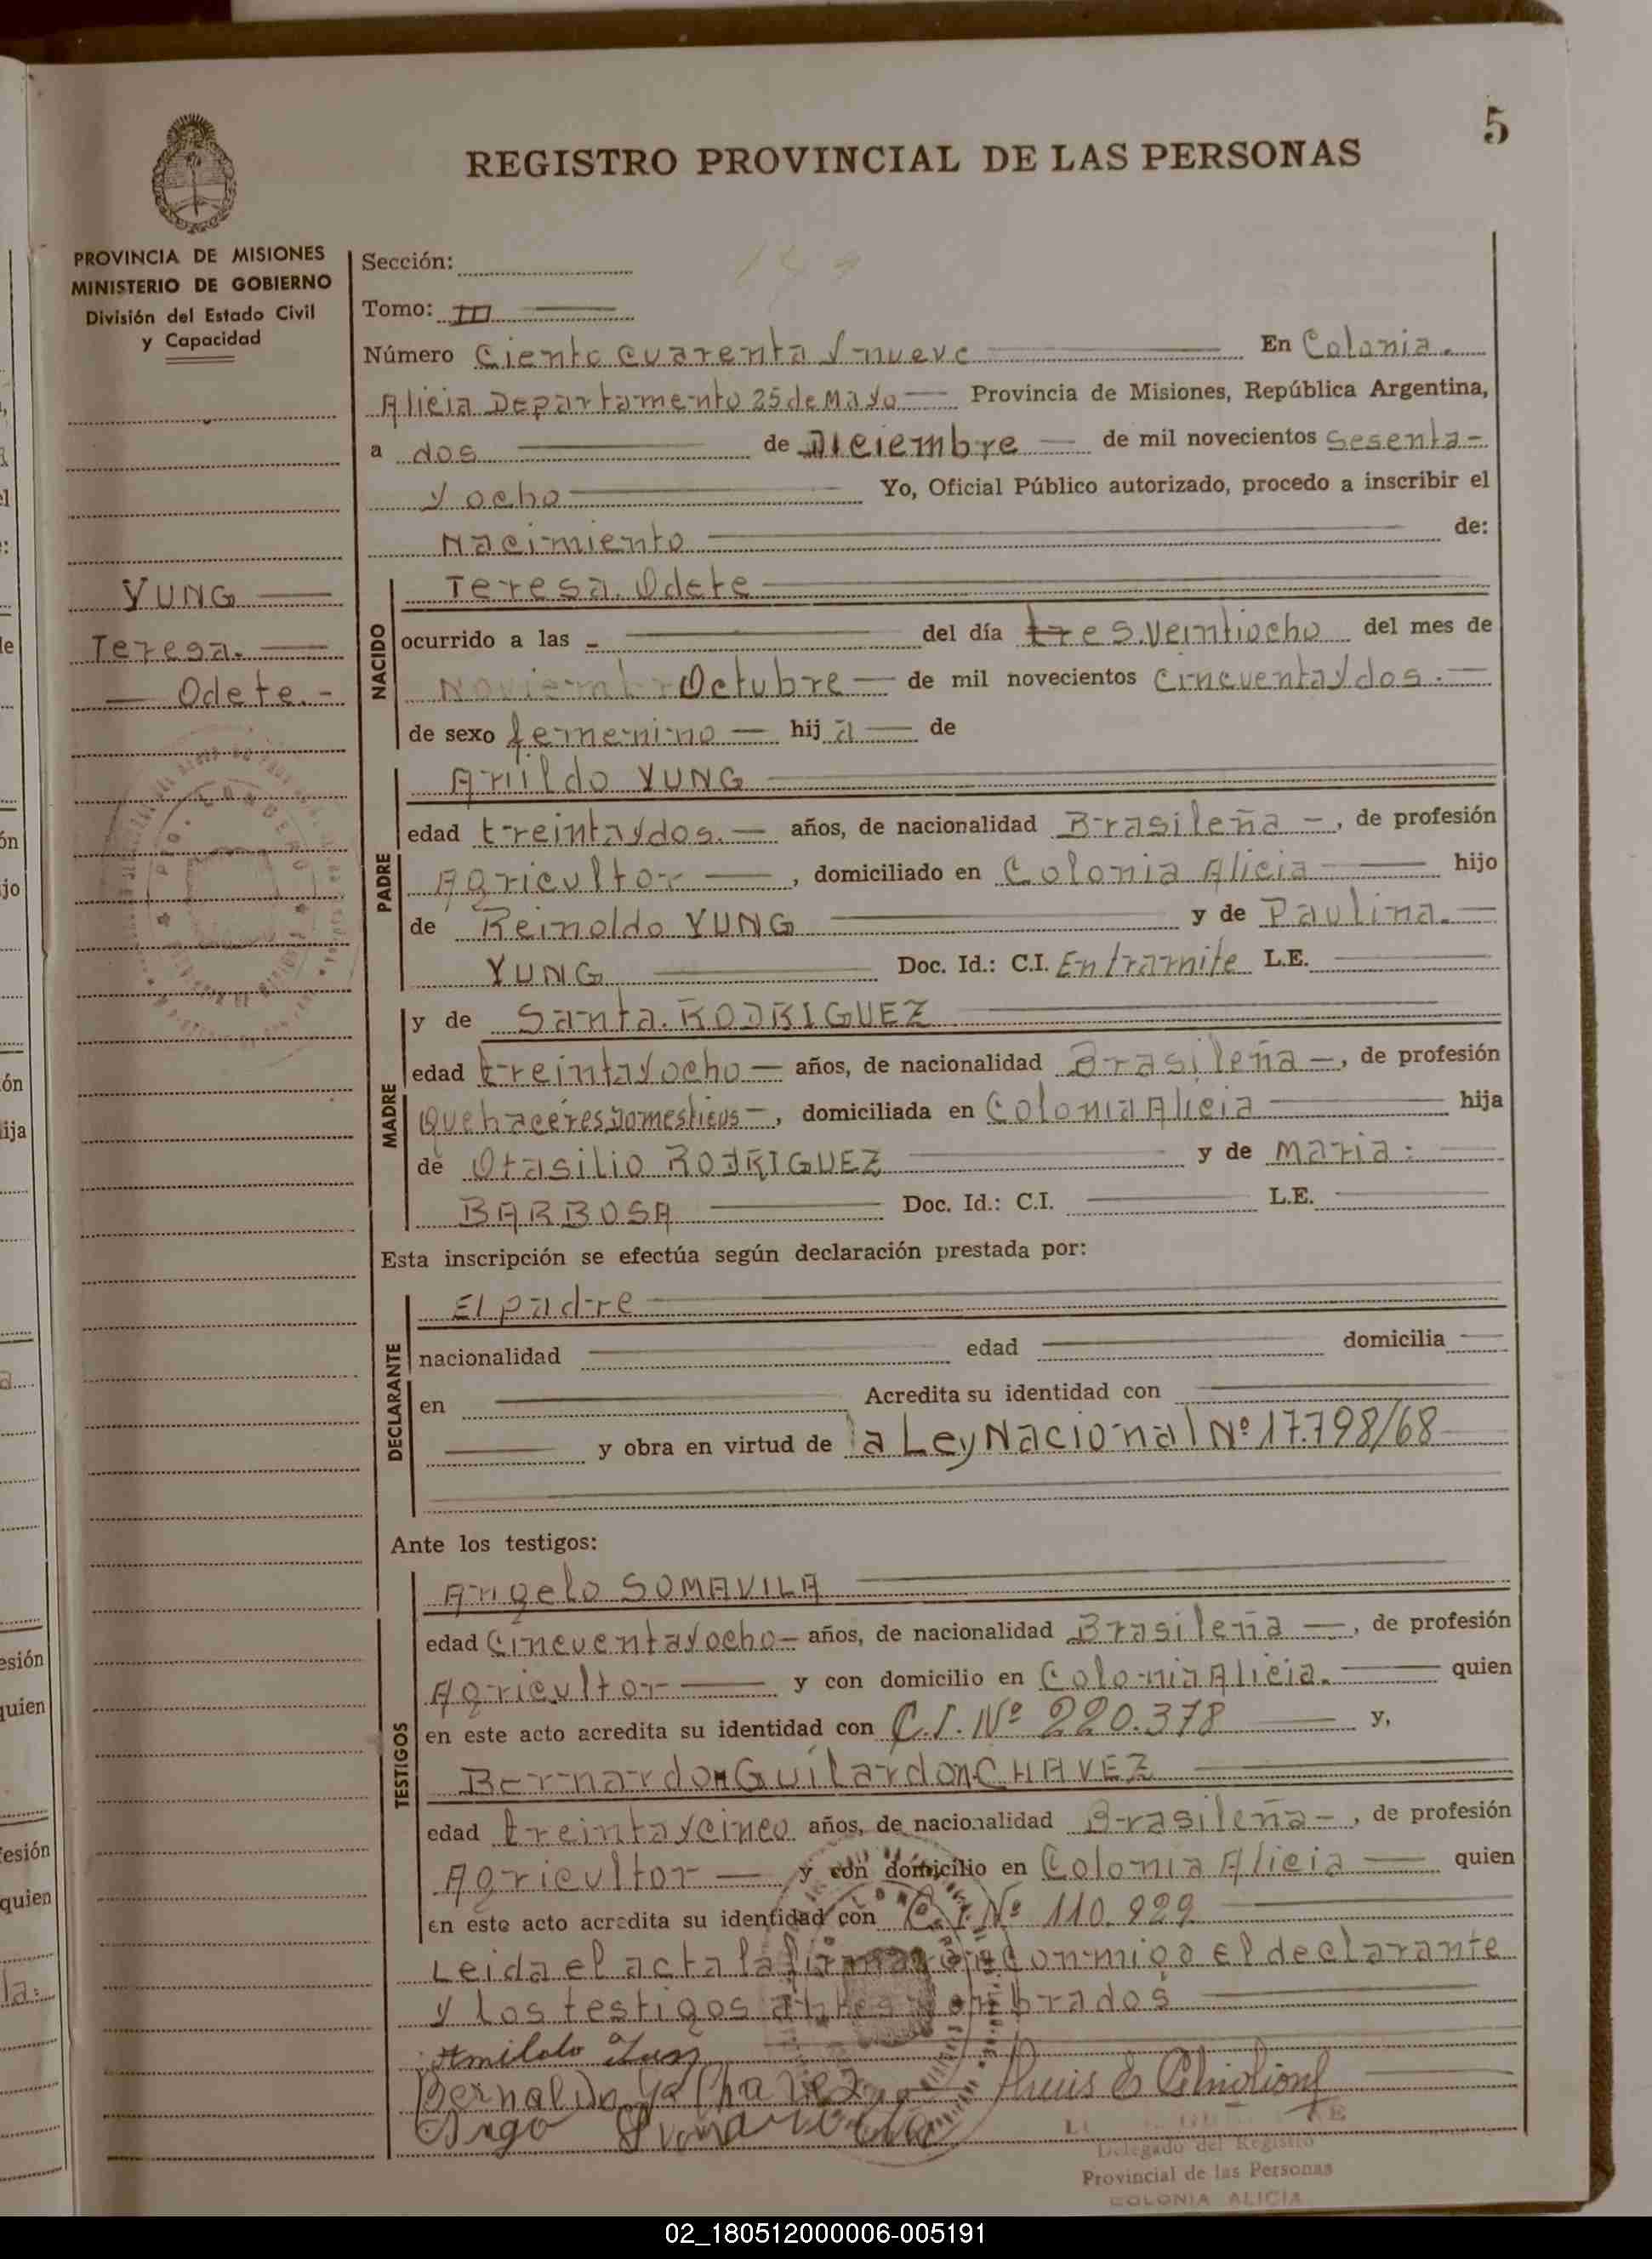 5
REGISTRO PROVINCIAL DE LAS PERSONAS
PROVINCIA DE MISIONES
MINISTERIO DE GOBIERNO
División del Estado Civil
y Capacidad
YUNG
Teresa.
Odete.-
Sección:
Tomo: III
Número Ciento cuarenta y nueve En Colonia.
Alicia Departamento 25 de Mayo Provincia de Misiones, República Argentina,
a dos de Diciembre de mil novecientos Sesenta-
y ocho Yo, Oficial Público autorizado, procedo a inscribir el
Nacimiento de:
NACIDO
Teresa. Odete
ocurrido a las - del día tres. Veintiocho del mes de
Noviembre Octubre de mil novecientos Cincuenta y dos.
de sexo femenino hija de
PADRE
Arnildo YUNG
edad treinta y dos. años, de nacionalidad Brasileña, de profesión
Agricultor, domiciliado en Colonia Alicia hijo
de Reinoldo YUNG y de Paulina.
YUNG Doc. Id.: C.I. En tramite L.E.
MADRE
y de Santa. RODRIGUEZ
edad treinta y ocho años, de nacionalidad Brasileña, de profesión
Quehaceres Domesticos, domiciliada en Colonia Alicia hija
de Otasilio RODRIGUEZ y de Maria.
BARBOSA Doc. Id.: C.I. L.E.
Esta inscripción se efectúa según declaración prestada por:
DECLARANTE
El padre
nacionalidad edad domicilia
en Acredita su identidad con
y obra en virtud de la Ley Nacional Nº 17.798/68
Ante los testigos:
TESTIGOS
Angelo SOMAVILA
edad Cincuenta y ocho años, de nacionalidad Brasileña, de profesión
Agricultor y con domicilio en Colonia Alicia. quien
en este acto acredita su identidad con C.I. Nº 220.378 y,
Bernardon Guilardon CHAVEZ
edad treinta y cinco años, de nacionalidad Brasileña, de profesión
Agricultor y con domicilio en Colonia Alicia quien
en este acto acredita su identidad con C.I. Nº 110.929
Leida el acta la firmaron conmigo el declarante
y los testigos antes nombrados
Delegado del Registro
Provincial de las Personas
COLONIA ALICIA
02_180512000006-005191